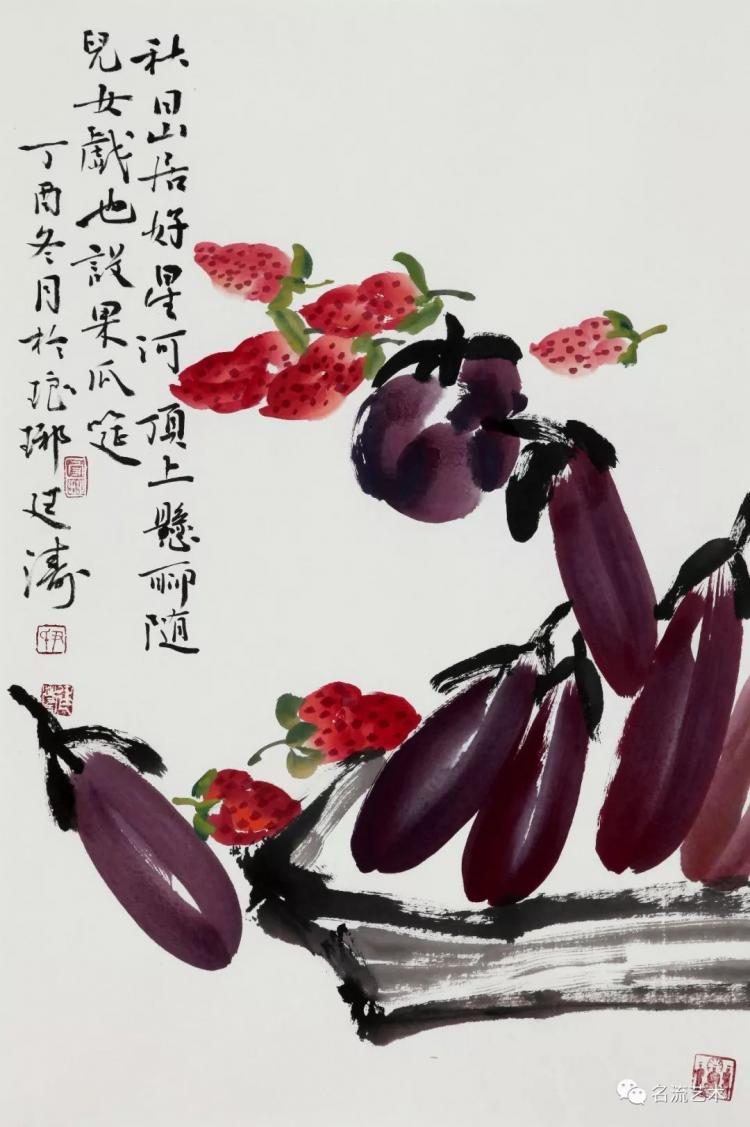 秋日山居好星河頂上懸聊隨
兒女戲也設果瓜筵
丁酉冬月於琅琊廷濤
名流艺术